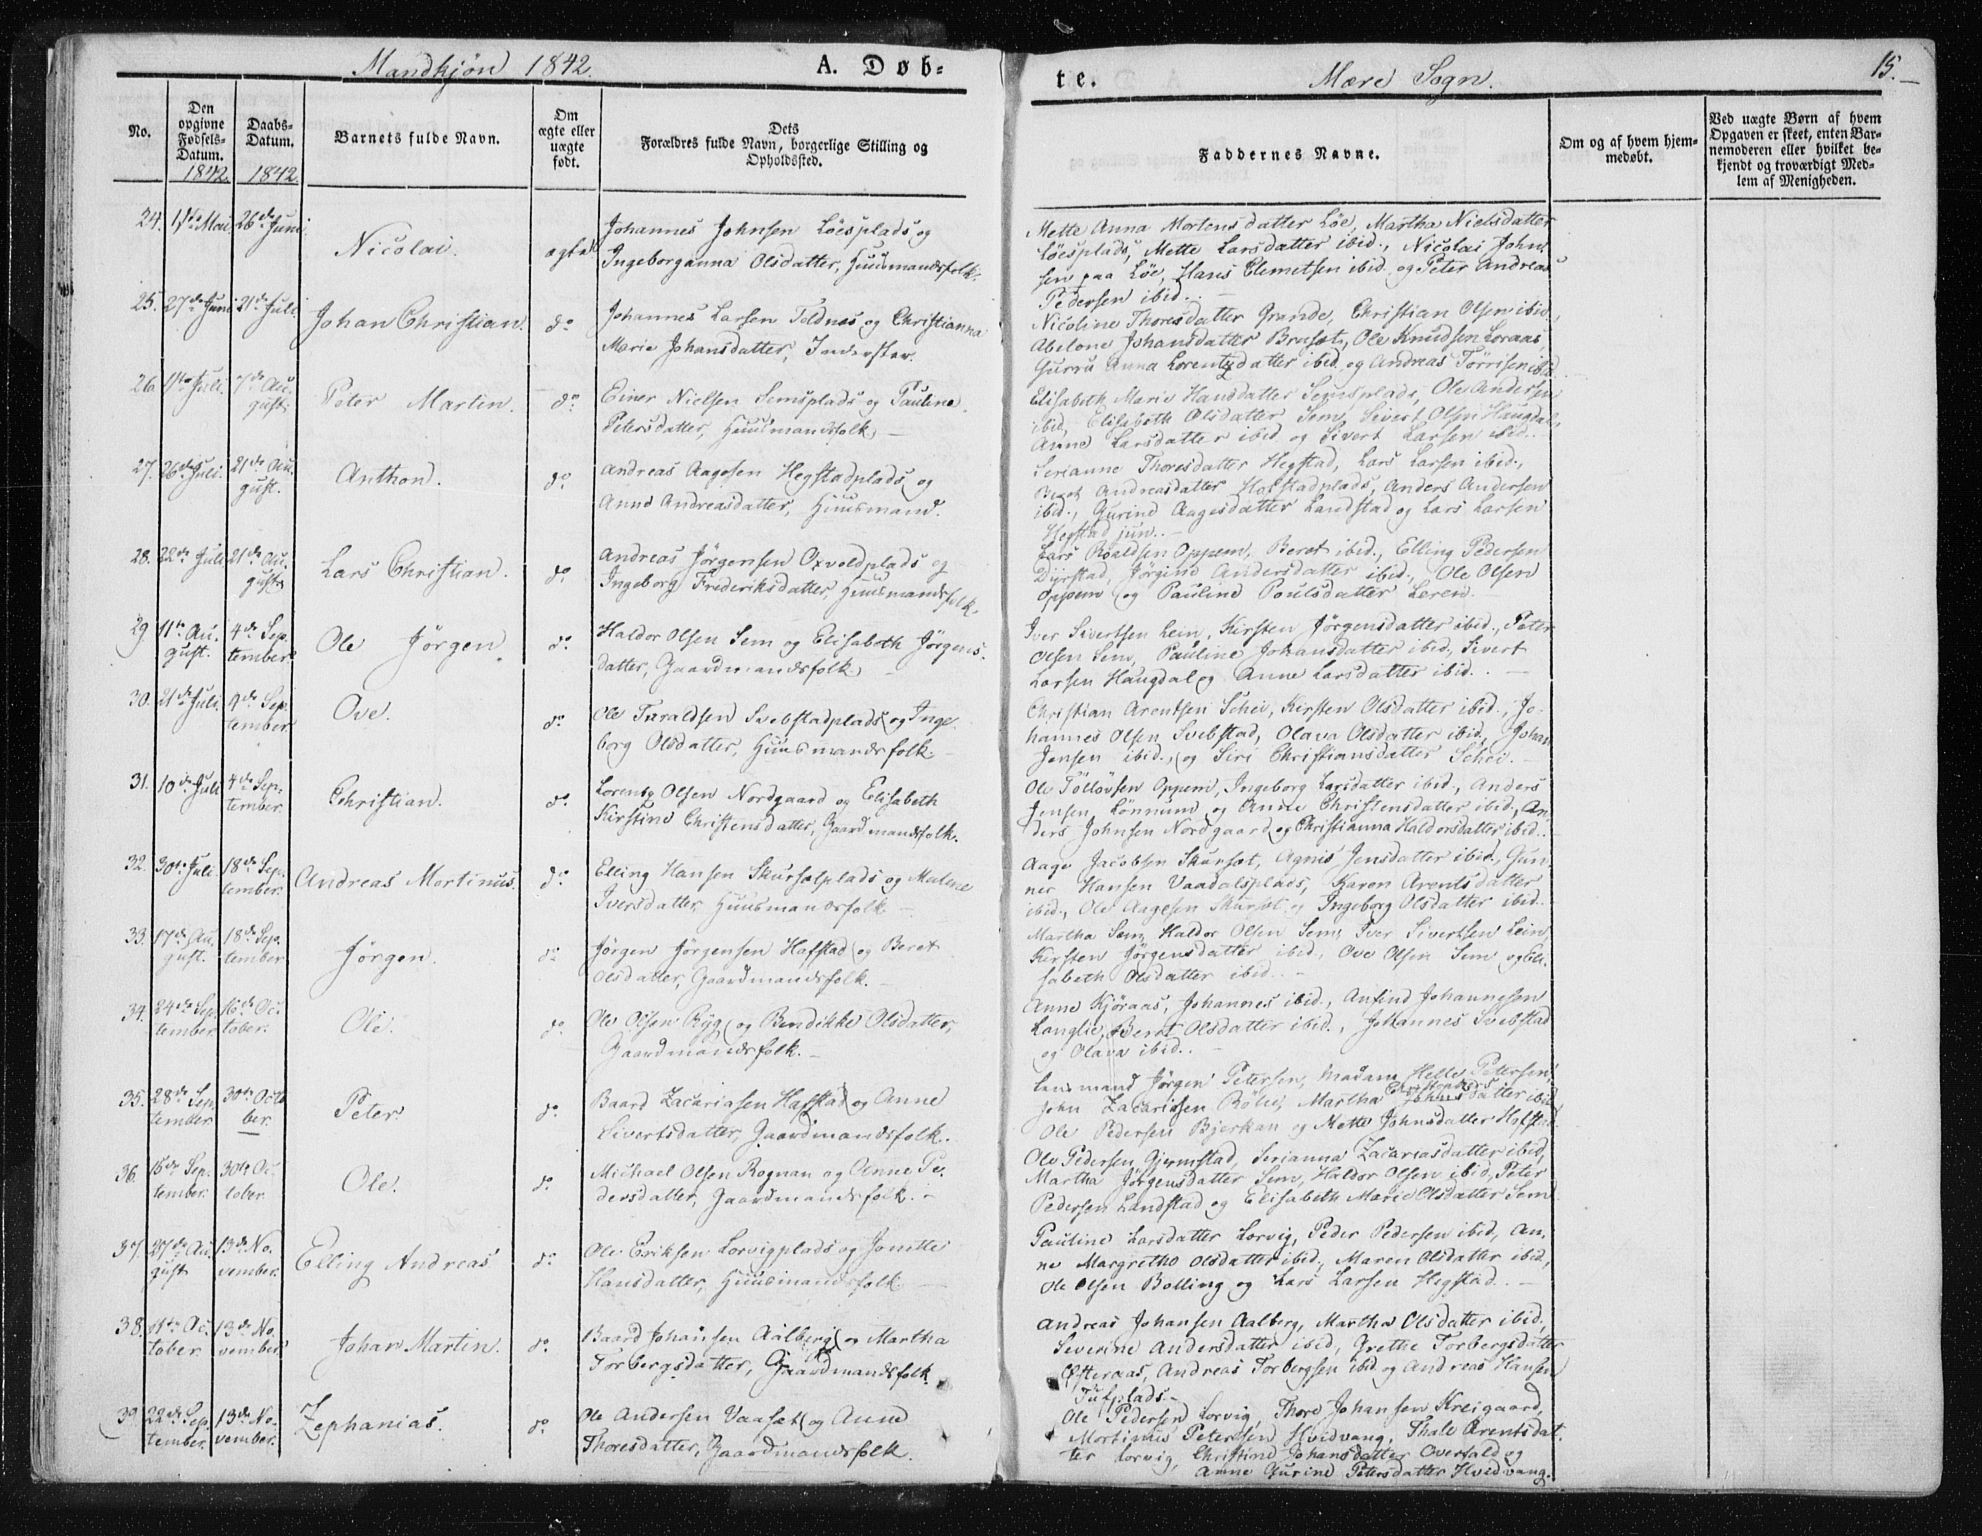 Mandkjøn 1842.
A. Døb=
te.
Mære Sogn.
15.
No.
Den opgivne Fødsels-Datum.
1842
Daabs-Datum.
1842
Barnets fulde Navn.
Om ægte eller uægte født.
Dets Forældres fulde Navn, borgerlige Stilling og Opholdssted.
Faddernes Navne.
Om og af hvem hjem-
medøbt.
Ved uægte Børn af hvem
Opgaven er skeet, enten Bar-
nemoderen eller hvilket be-
kjendt og troværdigt Med-
lem af Menigheden.
24. Mai 26de Juni
Nicolai.
Johannes Johnsen Löesplads og
Ingeborganna Olsdatter, Huusmandsfolk.
Mette Anna Mortensdatter Löe, Martha Nielsdatter
Löesplads, Mette Larsdatter ibid., Nicolai John-
sen paa Löe, Hans Clemetsen ibid. og Peter Andreas
Pedersen ibid.
25. 27de Juni 21de Juli
Johan Christian. do
Johannes Larsen Foldnes og Christianna
Marie Johansdatter, Inderster.
Nicoline Thoresdatter Grande, Christian Olsen ibid.,
Abelone Johansdatter Brusæt, Ole Knudsen Loraas,
Gurru Anna Lorentzdatter ibid. og Andreas Törrisen ibid.
26. Juli. 7de Au-
gust.
Peter Martin. do
Einer Nielsen Semsplads og Pauline
Petersdatter, Huusmandsfolk.
Elisabeth Marie Hansdatter Semsplads, Ole Andersen
ibid., Elisabeth Olsdatter Sem, Sivert Olsen Haugdal,
Anne Larsdatter ibid. og Sivert Larsen ibid.
27. 26de Juli. 21de Au-
gust.
Anthon. do
Andreas Aagesen Hegstadplads og
Anne Andreasdatter, Huusmand.
Serianne Thoresdatter Hegstad, Lars Larsen ibid.,
Beret Andreasdatter Hofstadplads, Anders Andersen
ibid., Gurine Aagesdatter Landstad og Lars Larsen
Hegstad jun.
28. 22de Juli 21de Au-
gust
Lars Christian. do
Andreas Jörgensen Oxvoldplads og
Ingeborg Frederiksdatter, Huusmandsfolk.
Lars Roaldsen Oppem, Beret ibid., Elling Pedersen
Dyrstad, Jörgine Andersdatter ibid., Ole Olsen
Oppem og Pauline Poulsdatter Leren.
29 11te Au-
gust. 4de Sep-
tember.
Ole Jörgen do
Haldor Olsen Sem og Elisabeth Jörgens-
datter, Gaardmandsfolk
Iver Sivertsen Lein, Kirsten Jörgensdatter ibid., Peter
Olsen Sem, Pauline Johansdatter ibid., Sivert
Larsen Haugdal og Anne Larsdatter ibid.
30. 21de Juli. 4de Sep-
tember.
Ove. do
Ole Taraldsen Svebstadplads og Inge-
borg Olsdatter, Huusmandsfolk.
Christian Arentsen Schei, Kirsten Olsdatter ibid., Jo-
hannes Olsen Svebstad, Olava Olsdatter ibid., Johan
Jensen ibid., og Siri Christiansdatter Schei.
31. 10de Juli 4de Sep-
tember.
Christian. do
Lorentz Olsen Nordgaard og Elisabeth
Kirstine Christensdatter, Gaardmandsfolk.
Ole Töllövsen Oppem, Ingeborg Larsdatter ibid., Anders
Jensen Lönnum og Anne Christensdatter ibid., An-
ders Johnsen Nordgaard og Christianna Haldorsdatter ibid.
32. 30te Juli. 18de Sep-
tember.
Andreas Martinus. do
Elling Hansen Skursalplads og Malene
Iversdatter, Huusmandsfolk.
Aage Jacobsen Skursæt, Agnis Jensdatter ibid., Gun-
ner Hansen Vaadalsplads, Karen Arentsdatter
ibid., Ole Aagesen Skursæt og Ingeborg Olsdatter ibid.
33. 17de Au-
gust. 18de Sep-
tember
Jörgen. do
Jörgen Jörgensen Hafstad og Beret
Olsdatter, Gaardmandsfolk.
Martha Sem, Haldor Olsen Sem, Iver Sivertsen Lein
Kirsten Jörgensdatter ibid., Ove Olsen Sem og Eli-
sabeth Olsdatter ibid.
34. 24de Sep-
tember 16de Oc-
tober.
Ole. do
Ole Olsen Ryg og Bendikke Olsdatter,
Gaardmandsfolk.
Anne Kjöraas, Johannes ibid., Anfind Johannesen
Langlie, Beret Olsdatter ibid., Johannes Svebstad
og Olava ibid.
35. 28de Sep-
tember 30te Octo-
ber.
Peter do
Baard Zacariasen Hafstad og Anne
Sivertsdatter, Gaardmandsfolk.
Lensmand Jörgen Petersen, Madam Helle Petersen,
John Zacariasen Bölie, Martha datter ibid.
Ole Pedersen Bjerkan og Mette Johnsdatter Hafstad.
36. 15de Sep-
tember. 30te Oc-
tober.
Ole. do
Michael Olsen Rognan og Anne Pe-
dersdatter, Gaardmandsfolk.
Ole Pedersen Gjermstad, Serianna Zacariasdatter ibid.,
Martha Jörgensdatter Sem, Haldor Olsen ibid., Peter
Pedersen Landstad og Elisabeth Marie Olsdatter Sem
37. 27de Au-
gust 13de No-
vember.
Elling Andreas do
Ole Eriksen Lorvigplads og Jonette
Hansdatter, Huusmandsfolk
Pauline Larsdatter Lorvig, Peder Pedersen ibid., An-
ne Margrethe Olsdatter ibid., Maren Olsdatter ibid.,
Ole Olsen Bolling og Lars Larsen Hegstad.
38. 11te Oc-
tober. 13de No-
vember.
Johan Martin. do
Baard Johansen Aalberg og Martha
Torbergsdatter, Gaardmandsfolk.
Andreas Johansen Aalberg, Martha Olsdatter ibid.,
Severine Andersdatter ibid., Grethe Torbergsdatter
Østeraas, Andreas Torbergsen ibid. og Andreas Hansen
Tufplads.
39. 22de Sep-
tember. 13de No-
vember.
Zephanias. do
Ole Andersen Vaasæt og Anne
Thoresdatter, Gaardmandsfolk.
Ole Pedersen Lorvig, Thore Johansen Kreigaard,
Martinus Petersen Hvidvang, Thale Arentsdat-
ter Lorvig, Christine Johansdatter Overfald og
Anne Gurine Petersdatter Hvidvang.